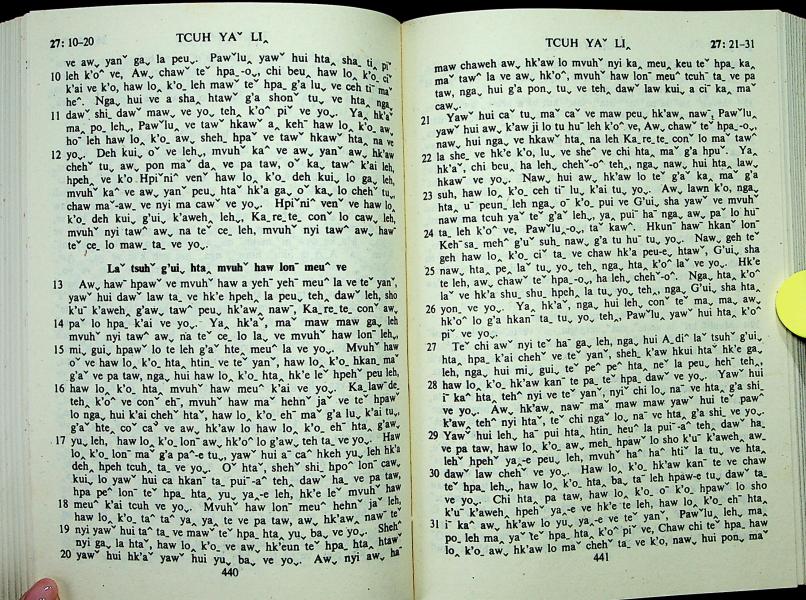 27: 10–20 TCUH YAˇ LI‸
ve aw˯ yanˇ ga˯ la peu˯. Pawˇlu˯ yawˇ hui hta‸ sha_ ti‸ piˇ
10 leh k’oˆ ve, Aw˯ chawˇ teˇ hpa_-o˯, chi beu‸ haw lo‸ k’o_ ciˇ
k’ai ve k’o, haw lo‸ k’o_ leh maw teˇ hpa_ g’a lu˯ ve ceh tiˉ maˇ
heˆ. Nga˯ hui ve a sha‸ htawˇ g’a shonˇ tu˯ ve hta‸ nga˯
11 dawˇ shi_ dawˇ maw˯ ve yo˯ teh‸ k’oˆ piˇ ve yo˯. Ya‸ hk’aˇ
ma‸ po_ leh˯, Pawˇlu˯ ve tawˇ hkawˇ a‸ kehˉ haw lo‸ k’o_ aw˯
hoˉ leh haw lo‸ k’o_ aw˯ sheh_ hpaˇ ve tawˇ hkawˇ hta‸ na ve
12 yo˯. Deh kui˯ o ve leh˯, mvuhˇ kaˆ ve aw˯ yanˇ aw˯ hk’aw
chehˇ tu˯ aw˯ pon maˇ da˯ ve pa taw˯ oˇ ka˯ tawˆ k’ai leh
hpeh˯ ve k’o Hpiˇniˆ venˇ haw lo‸ k’o_ deh kui˯ lo ga leh˯
mvuhˇ kaˆ ve aw˯ yanˇ peu˯ htaˇ hk’a ga‸ oˇ ka˯ lo chehˇ tu˯
chaw maˇ-aw˯ ve nyi ma cawˇ ve yo˯. Hpiˇniˆ venˇ ve haw lo‸
k’o_ deh kui˯ g’ui˯ k’aweh‸ leh˯, Ka_re_te_ conˇ lo caw˯ leh˯
mvuhˇ nyi tawˆ aw˯ naˉ teˇ ce_ leh˯ mvuhˇ nyi tawˆ aw˯ hawˇ
teˇ ce_ lo maw_ ta_ ve yo˯.
Laˇ tsuhˇ g’ui‸ hta‸ mvuhˇ haw lonˉ meuˆ ve
13 Aw˯ hawˇ hpawˇ ve mvuhˇ haw a yehˉ yehˉ meuˆ la ve teˇ yanˇ,
yawˇ hui dawˇ law ta˯ ve hk’e hpeh‸ la peu˯ teh‸ dawˇ leh˯ sho
k’uˉ k’aweh‸ g’aw˯ tawˇ peu˯ hk’aw‸ nawˉ, Ka_re_te_ conˇ aw˯
14 paˇ lo hpa_ k’ai ve yo˯. Ya‸ hk’aˇ, maˇ maw maw ga˯ leh
mvuhˇ nyi tawˆ aw˯ naˉ teˇ ce_ lo la˯ ve mvuhˇ haw lonˉ leh˯
15 mi˯ gui˯ hpawˇ lo te leh g’aˇ hte‸ meuˆ la ve yo˯. Mvuhˇ haw
oˇ ve haw lo‸ k’o_ hta‸ htin_ ve teˇ yanˇ, haw lo‸ k’o_ hkan_ maˇ
g’aˇ ve pa taw˯ nga˯ hui haw lo‸ k’o_ hta‸ hk’e leˇ hpehˇ peu leh˯
16 haw lo‸ k’o_ hta‸ mvuhˇ haw meuˆ k’ai ve yo˯. Ka_law˯de_
teh‸ k’oˆ ve conˇ ehˉ, mvuhˇ haw maˇ hehnˇ jaˇ ve teˇ hpawˇ
lo nga˯ hui k’ai chehˇ htaˇ, haw lo‸ k’o_ ehˉ maˇ g’a lu‸ k’ai tu˯
g’aˇ hte‸ coˇ caˇ ve aw˯ hk’aw lo haw lo‸ k’o_ ehˉ hta‸ g’aw˯
17 yu˯ leh, haw lo‸ k’o_ lonˉ aw˯ hk’oˆ lo g’aw˯ teh ta_ ve yo˯. Haw
lo‸ k’o_ lonˉ maˇ g’a paˆ-e tu˯, yawˇ hui aˉ caˆ hkeh yu˯ leh hk’a
deh‸ hpeh tcuh ta_ ve yo˯. Oˇ htaˇ, shehˇ shi_ hpoˆ lonˉ caw˯
kui˯ lo yawˇ hui ca hkanˉ ta_ puiˉ-aˇ teh‸ dawˇ ha_ ve pa taw˯
hpa peˆ lonˉ teˇ hpa_ hta‸ yu˯ ya˯-e leh, hk’e leˇ mvuhˇ haw
18 meuˆ k’ai tcuh ve yo˯. Mvuhˇ haw lonˉ meuˆ hehnˇ jaˇ leh˯
haw lo‸ k’o_ taˆ taˆ ya‸ ya‸ te ve pa taw˯ aw˯ hk’aw‸ nawˉ teˇ
19 nyi yawˇ hui taˆ ta_ ve mawˇ teˇ hpa_ hta‸ yu˯ ba˯ ve yo˯. Shehˆ
nyi ga˯ la htaˇ, haw lo‸ k’o_ ve aw˯ hk’eun teˇ hpa_ hta‸ htaw
20 yawˇ hui hk’aˇ yawˇ hui yu˯ ba˯ ve yo˯. Aw˯ nyi aw˯ haˉ
440
TCUH YAˇ LI‸ 27: 21–31
maw chaweh aw˯ hk’aw lo mvuhˇ nyi ka‸ meu‸ keu teˇ hpa_ ka‸
maˇ tawˆ la ve aw˯ hk’oˆ, mvuhˇ haw lonˉ meuˇ tcuhˉ ta_ ve pa
taw˯ nga˯ hui g’a pon˯ tu˯ ve teh‸ dawˇ law kui˯ a ciˉ ka‸ maˇ
caw˯.
21 Yawˇ hui caˇ tu˯ maˇ caˇ ve maw peu˯ hk’aw‸ nawˉ, Pawˇlu‸
yawˇ hui aw˯ k’aw ji lo tu huˉ leh k’oˆ ve, Aw˯ chawˇ teˇ hpa_-o˯,
naw˯ hui nga˯ ve hkawˇ hta‸ na leh Ka_re_te_ conˇ lo maˇ tawˆ
22 la she_ ve hk’e k’o, lu˯ ve sheˆ ve chi hta‸ maˇ g’a hpuˇ. Ya‸
hk’aˇ, chi beu‸ ha leh˯ chehˇ-oˆ teh‸ nga˯ naw˯ hui hta‸ law˯
hkawˇ ve yo˯. Naw˯ hui aw˯ hk’aw lo teˇ g’aˇ ka‸ maˇ g’a
23 suh˯ haw lo‸ k’o_ ceh tiˇ lu˯ k’ai tu˯ yo˯. Aw˯ lawn k’o, nga˯
hta‸ uˉ peun˯ leh nga˯ oˉ k’o_ pui ve G’ui˯ sha yaw ve mvuhˇ
naw ma tcuh yaˇ teˇ g’aˇ leh˯, ya‸ puiˉ haˉ nga˯ aw˯ paˇ lo huˉ
24 ta_ leh k’oˆ ve, Pawˇlu˯-o˯ taˇ kawˆ. Hkunˉ hawˉ hkanˉ lonˉ
Kehˉ sa_ mehˆ g’uˇ suh_ naw˯ g’a tu huˉ tu˯ yo˯. Naw˯ geh teˇ
geh haw lo‸ k’o_ ciˇ ta_ ve chaw hk’a peu-e˯ htaw˯, G’ui˯ sha
25 naw˯ hta‸ pe‸ laˇ tu˯ yo˯ teh‸ nga˯ hta‸ k’oˆ laˇ ve yo˯. Hk’e
te leh, aw˯ chawˇ teˇ hpa_-o˯ ha leh˯ chehˇ-oˆ. Nga˯ hta‸ k’oˆ
laˇ ve hk’a shu_ shu_ hpeh‸ la tu˯ yo˯ teh‸ nga˯ G’ui˯ sha hta‸
26 yon_ ve yo˯. Ya‸ hk’aˇ, nga˯ hui leh˯ conˇ teˇ ma‸ ma‸ aw˯
hk’oˆ lo g’a hkanˉ ta_ tu˯ yo˯ teh‸ Pawˇlu‸ yawˇ hui hta‸ k’oˆ
piˇ ve yo˯.
27 Teˇ chi awˇ nyi teˇ haˉ ga˯ leh, nga˯ hui A_diˆ laˇ tsuhˇ g’ui˯
hta‸ hpa_ k’ai chehˇ ve teˇ yanˇ, sheh_ k’aw hkui htaˇ hk’e ga˯
leh, nga˯ hui mi˯ gui˯ teˇ peˆ peˆ hta‸ neˇ la peu˯ hehˉ teh˯
28 haw lo‸ k’o_ hk’aw kanˉ te pa_ teˇ hpa_ dawˇ ve yo˯. Yawˇ hui
iˉ ka‸ hta‸ tehˆ nyi ve teˇ yanˇ, nyiˇ chi lo‸ naˉ ve hta‸ g’a shi_
ve yo˯. Aw˯ hk’aw‸ nawˉ maˇ maw maw yawˇ hui teˇ pawˇ
k’aw‸ tehˆ nyi htaˇ, teˇ chi ngaˇ lo‸ naˉ ve hta‸ g’a shi_ ve yo˯.
29 Yawˇ hui leh˯ haˉ pui hta‸ htin_ heuˇ la puiˉ-aˇ teh‸ dawˇ ha_
ve pa taw˯ haw lo‸ k’o_ aw˯ meh_ hpawˇ lo sho k’uˉ k’aweh‸ aw˯
lehˇ hpehˇ ya˯-e peu˯ leh, mvuhˇ haˆ haˆ htiˇ la tu˯ ve hta‸
30 dawˇ law chehˇ ve yo˯. Haw lo‸ k’o_ hk’aw kanˉ te ve chaw
teˇ hpa_ leh˯, haw lo‸ k’o_ hta‸ ba_ taˇ leh hpaw-e tu˯ dawˇ ta_
ve yo˯. Chi hta‸ pa taw˯ haw lo‸ k’o_ oˉ k’o_ hpawˇ lo sho
k’uˉ k’aweh‸ hpehˇ ya˯-e ve hk’e te leh, haw lo‸ k’o_ ehˉ hta‸
31 iˉ kaˆ aw˯ hk’aw lo yu˯ ya˯-e ve teˇ yanˇ, Pawˇlu˯ leh˯ ma‸
po_ leh ma‸ yaˇ teˇ hpa_ hta‸ k’oˆ piˇ ve, Chaw chi teˇ hpa_ haw
lo‸ k’o_ aw˯ hk’aw lo maˇ chehˇ ta_ ve k’o, naw˯ hui pon˯ maˇ
441